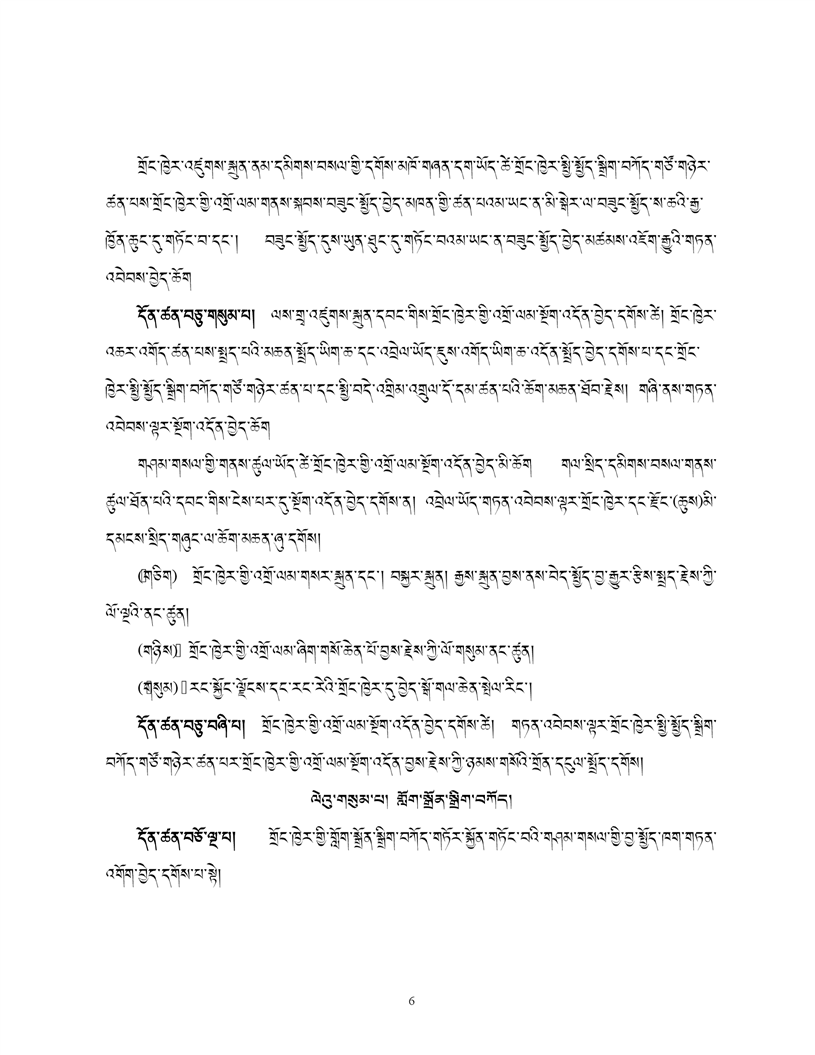 གྲོང་ཁྱེར་འཛུགས་སྐྲུན་ནམ་དམིགས་བསལ་གྱི་དགོས་མཁོ་གཞན་དག་ཡོད་ཚེ་གྲོང་ཁྱེར་སྤྱི་སྤྱོད་སྒྲིག་བཀོད་གཙོ་གཉེར་
ཚན་པས་གྲོང་ཁྱེར་གྱི་འགྲོ་ལམ་གནས་སྐབས་བཟུང་སྤྱོད་བྱེད་མཁན་གྱི་ཚན་པའམ་ཡང་ན་མི་སྒེར་ལ་བཟུང་སྤྱོད་ས་ཆའི་རྒྱ་
ཁྱོན་ཆུང་དུ་གཏོང་བ་དང་། བཟུང་སྤྱོད་དུས་ཡུན་ཐུང་དུ་གཏོང་བའམ་ཡང་ན་བཟུང་སྤྱོད་བྱེད་མཚམས་འཇོག་རྒྱུའི་གཏན་
འབེབས་བྱེད་ཆོག
དོན་ཚན་བཅུ་གསུམ་པ། ལས་གྲྭ་འཛུགས་སྐྲུན་དབང་གིས་གྲོང་ཁྱེར་གྱི་འགྲོ་ལམ་སྔོག་འདོན་བྱེད་དགོས་ཚེ། གྲོང་ཁྱེར་
འཆར་འགོད་ཚན་པས་སྤྲད་པའི་མཆན་སྤྲོད་ཡིག་ཆ་དང་འབྲེལ་ཡོད་ཇུས་འགོད་ཡིག་ཆ་འདོན་སྤྲོད་བྱེད་དགོས་པ་དང་གྲོང་
ཁྱེར་སྤྱི་སྤྱོད་སྒྲིག་བཀོད་གཙོ་གཉེར་ཚན་པ་དང་སྤྱི་བདེ་འགྲིམ་འགྲུལ་དོ་དམ་ཚན་པའི་ཆོག་མཆན་ཐོབ་རྗེས། གཞི་ནས་གཏན་
འབེབས་ལྟར་སྔོག་འདོན་བྱེད་ཆོག
གཤམ་གསལ་གྱི་གནས་ཚུལ་ཡོད་ཚེ་གྲོང་ཁྱེར་གྱི་འགྲོ་ལམ་སྔོག་འདོན་བྱེད་མི་ཆོག གལ་སྲིད་དམིགས་བསལ་གནས་
ཚུལ་ཐོན་པའི་དབང་གིས་ངེས་པར་དུ་སྔོག་འདོན་བྱེད་དགོས་ན། འབྲེལ་ཡོད་གཏན་འབེབས་ལྟར་གྲོང་ཁྱེར་དང་རྫོང་(ཆུས)མི་
དམངས་སྲིད་གཞུང་ལ་ཆོག་མཆན་ཞུ་དགོས།
(གཅིག) གྲོང་ཁྱེར་གྱི་འགྲོ་ལམ་གསར་སྐྲུན་དང་། བསྐྱར་སྐྲུན། རྒྱས་སྐྲུན་བྱས་ནས་བེད་སྤྱོད་བྱ་རྒྱུར་རྩིས་སྤྲད་རྗེས་ཀྱི་
ལོ་ལྔའི་ནང་ཚུན།
(གཉིས) གྲོང་ཁྱེར་གྱི་འགྲོ་ལམ་ཞིག་གསོ་ཆེན་པོ་བྱས་རྗེས་ཀྱི་ལོ་གསུམ་ནང་ཚུན།
(གསུམ) རང་སྐྱོང་ལྗོངས་དང་རང་རེའི་གྲོང་ཁྱེར་དུ་བྱེད་སྒོ་གལ་ཆེན་སྤེལ་རིང་།
དོན་ཚན་བཅུ་བཞི་པ། གྲོང་ཁྱེར་གྱི་འགྲོ་ལམ་སྔོག་འདོན་བྱེད་དགོས་ཚེ། གཏན་འབེབས་ལྟར་གྲོང་ཁྱེར་སྤྱི་སྤྱོད་སྒྲིག་
བཀོད་གཙོ་གཉེར་ཚན་པར་གྲོང་ཁྱེར་གྱི་འགྲོ་ལམ་སྔོག་འདོན་བྱས་རྗེས་ཀྱི་ཉམས་གསོའི་གྲོན་དངུལ་སྤྲོད་དགོས།
ལེའུ་གསུམ་པ། གློག་སྒྲོན་སྒྲིག་བཀོད།
དོན་ཚན་བཅོ་ལྔ་པ། གྲོང་ཁྱེར་གྱི་གློག་སྒྲོན་སྒྲིག་བཀོད་གཏོར་སྐྱོན་གཏོང་བའི་གཤམ་གསལ་གྱི་བྱ་སྤྱོད་ཁག་གཏན་
འགོག་བྱེད་དགོས་པ་སྟེ།
6